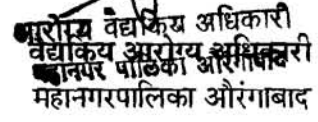 आरोग्य वैद्यकिय अधिकारी
वैद्यकिय आरोग्य अधिकारी
महानगर पालिका औरंगाबाद
महानगरपालिका औरंगाबाद